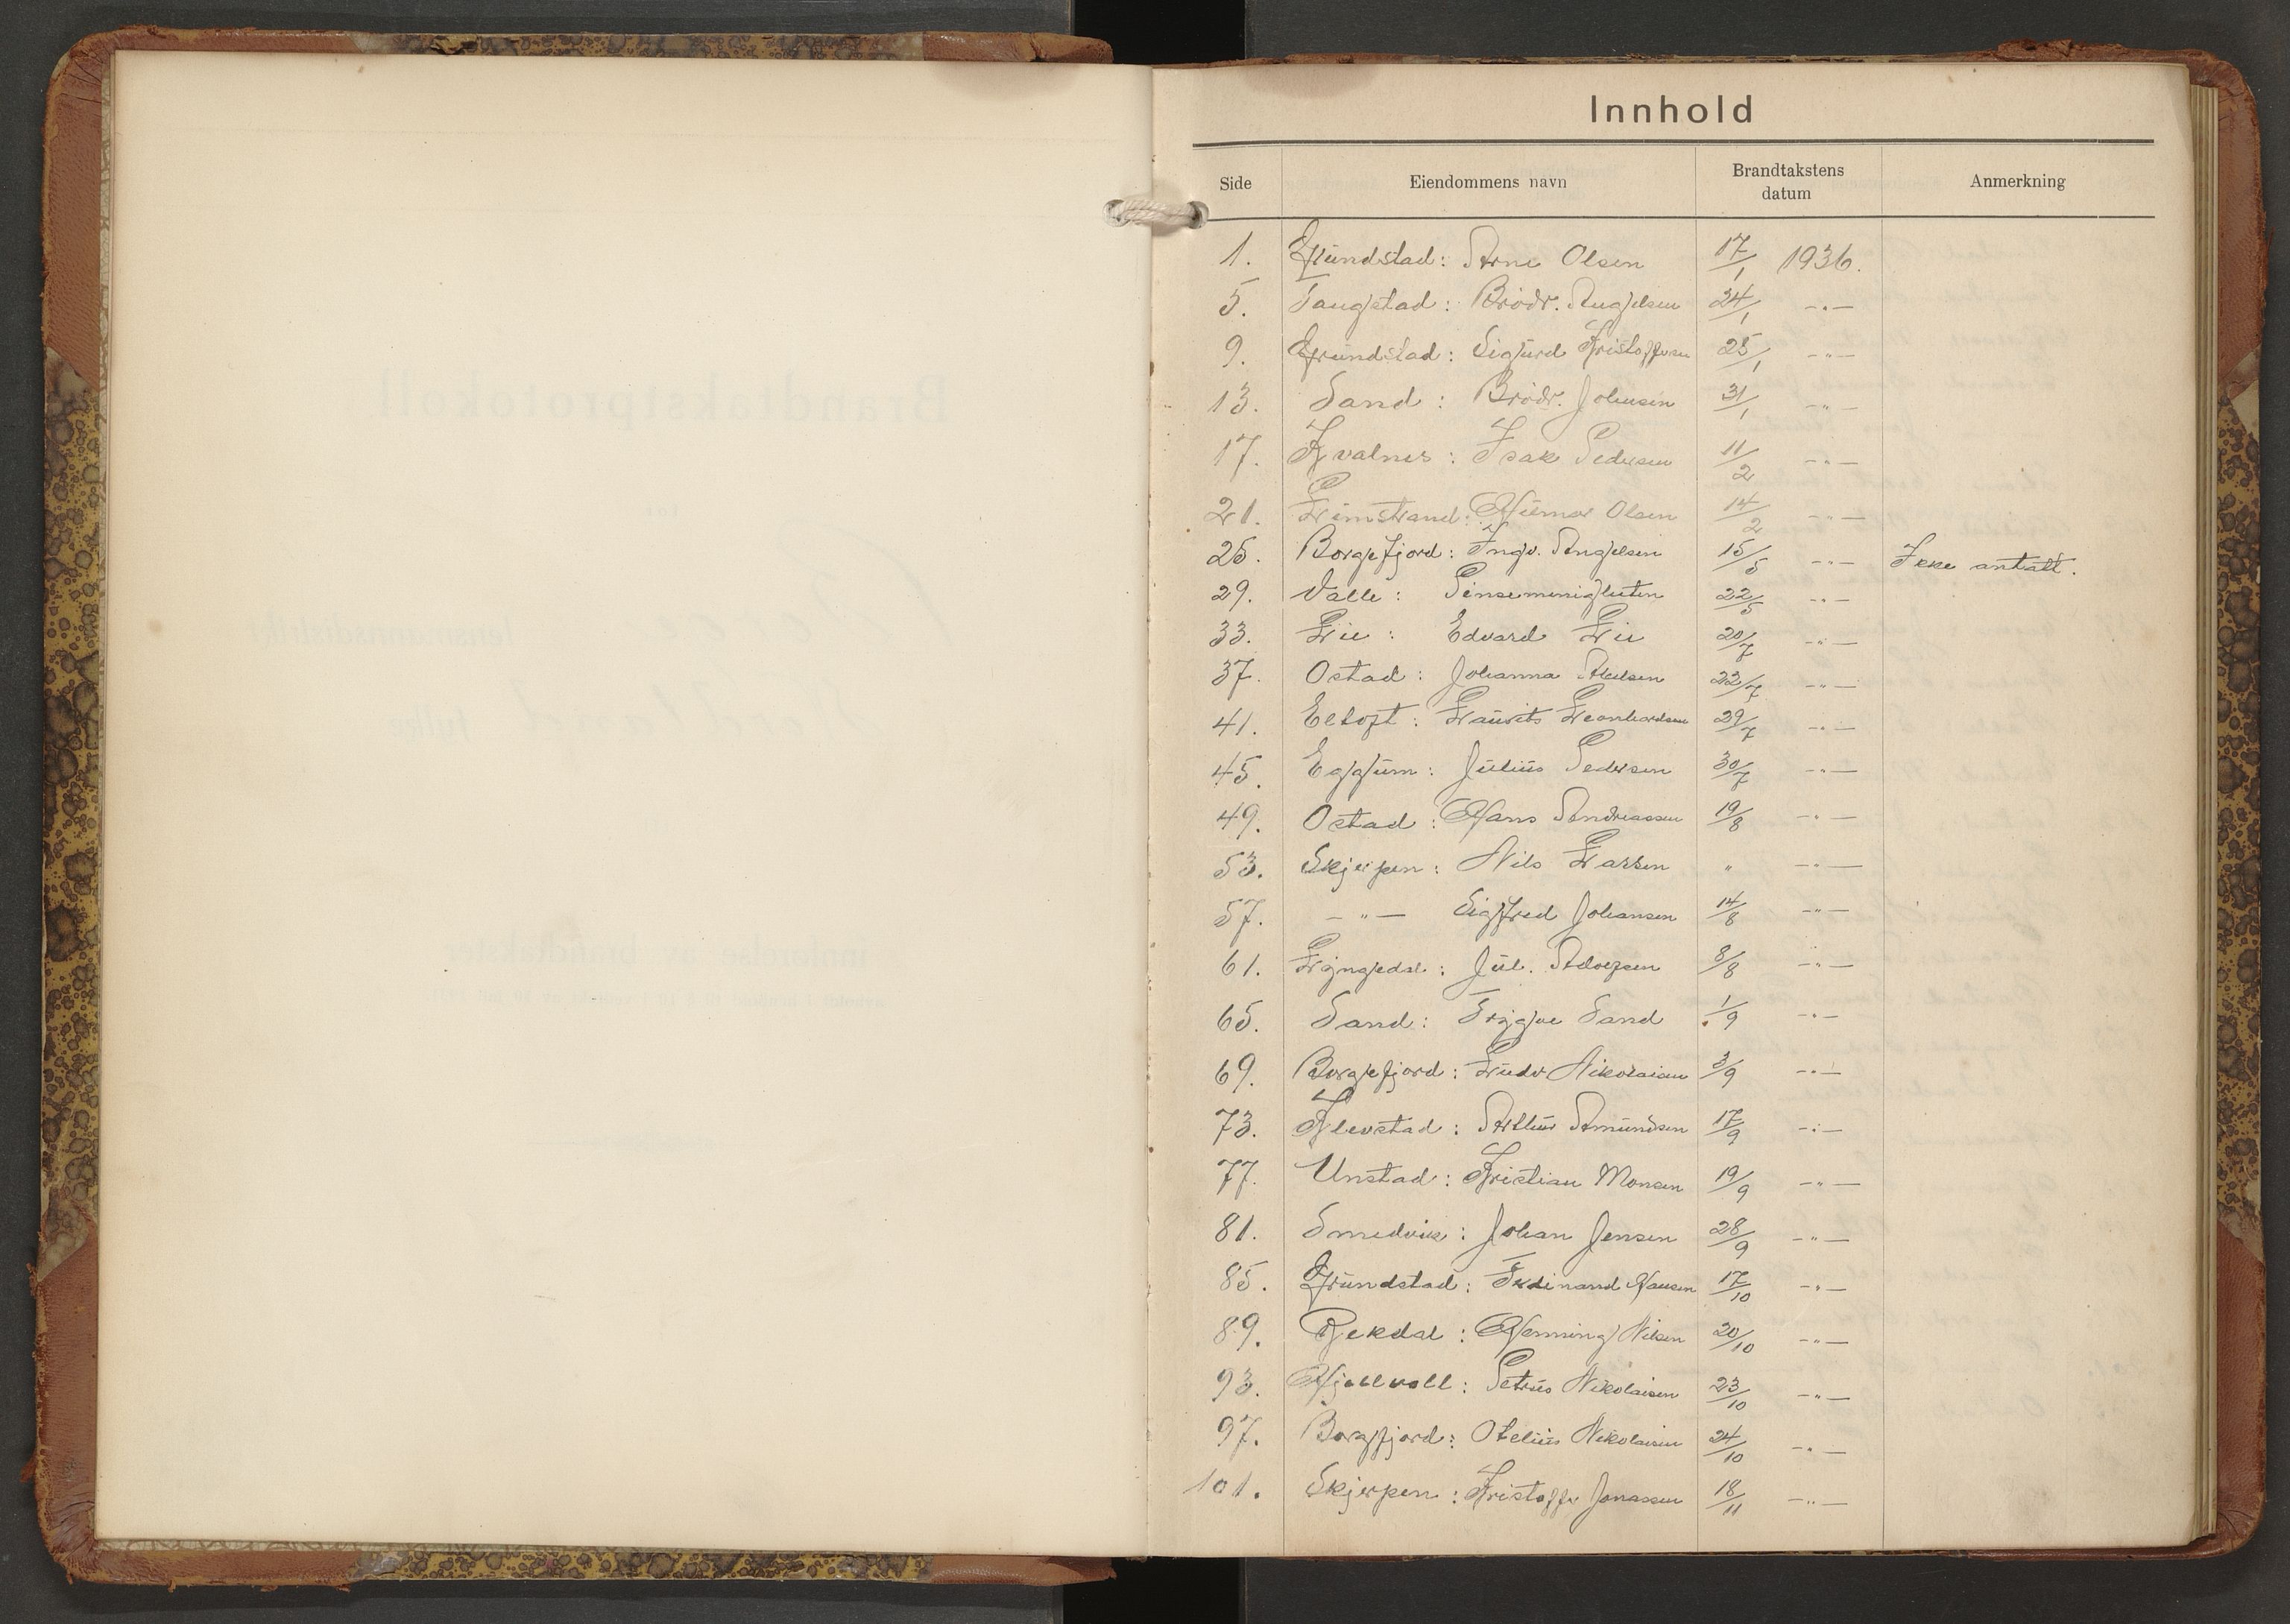 Innhold
Side Eiendommens navn Brandtakstens datum Anmerkning
1. Grundstad: Arne Olsen 17/1 1936.
5. Tangstad: Brödr. Angelsen 24/1 -"-
9. Grundstad: Sigurd Kristoffersen 25/1 -"-
13. Sand: Brödr. Johnsen 31/1 -"-
17. Kvalnes: Isak Pedersen 11/2 -"-
21. Limstrand: Hilmar Olsen 14/2 -"-
25. Borgefjord: Ingv. Angelsen 15/5 -"- Ikke antatt.
29. Valle: Pinsemenigheten 22/5 -"-
33. Lie: Edvard Lie 20/7 -"-
37. Ostad: Johanna 22/7 -"-
41. Eltoft: Laurits Leonhardsen 29/7 -"-
45. Eggum: Julius Pedersen 30/7 -"-
49. Ostad: Hans Andreassen 19/8 -"-
53. Skjerpen: Nils Larsen " -"-
57. -"- Sigfred Johansen 14/8 -"-
61. Lyngedal: Jul. Adolfsen 8/8 -"-
65. Sand: Trygve Sand 1/9 -"-
69. Borgefjord: Ludv Nikolaisen 3/9 -"-
73. Klevstad: Arthur Amundsen 17/9 -"-
77. Unstad: Kristian Monsen 19/9 -"-
81. Smedvik: Johan Jensen 28/9 -"-
85. Grundstad: Ferdinand Hansen 17/10 -"-
89. Rekdal: Henning Nilsen 20/10 -"-
93. Hjellvoll: Petrus Nikolaisen 23/10 -"-
97. Borgfjord: Otelius Nikolaisen 24/10 -"-
101. Skjerpen: Kristoffer Jonassen 18/11 -"-